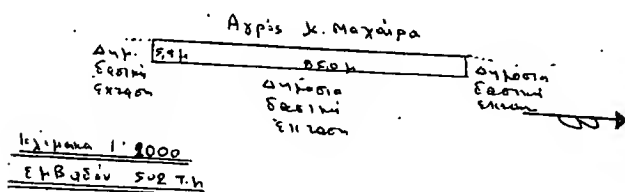 Αγρός κ. Μαχαίρα
5,9μ
85,0 μ
Δημ.
δασική
έκταση
Δημόσια
δασική
έκταση
Δημόσια
δασική
έκταση
Κλίμακα 1:2000
Εμβαδόν 502 τ.μ